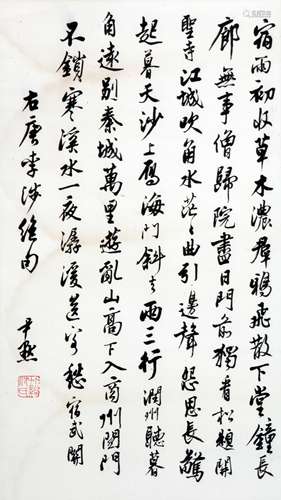 宿雨初收草木濃群鴉飛散下堂鐘長
廊無事僧歸院盡日門前獨看松題開
聖寺 江城吹角水茫〻曲引邊聲怨思長驚
起暮天沙上雁海門斜去兩三行 潤州聽暮
角遠別秦城萬里遊亂山高下入商州關門
不鎖寒溪水一夜潺湲送客愁 宿武關
右唐李涉絶句
尹默